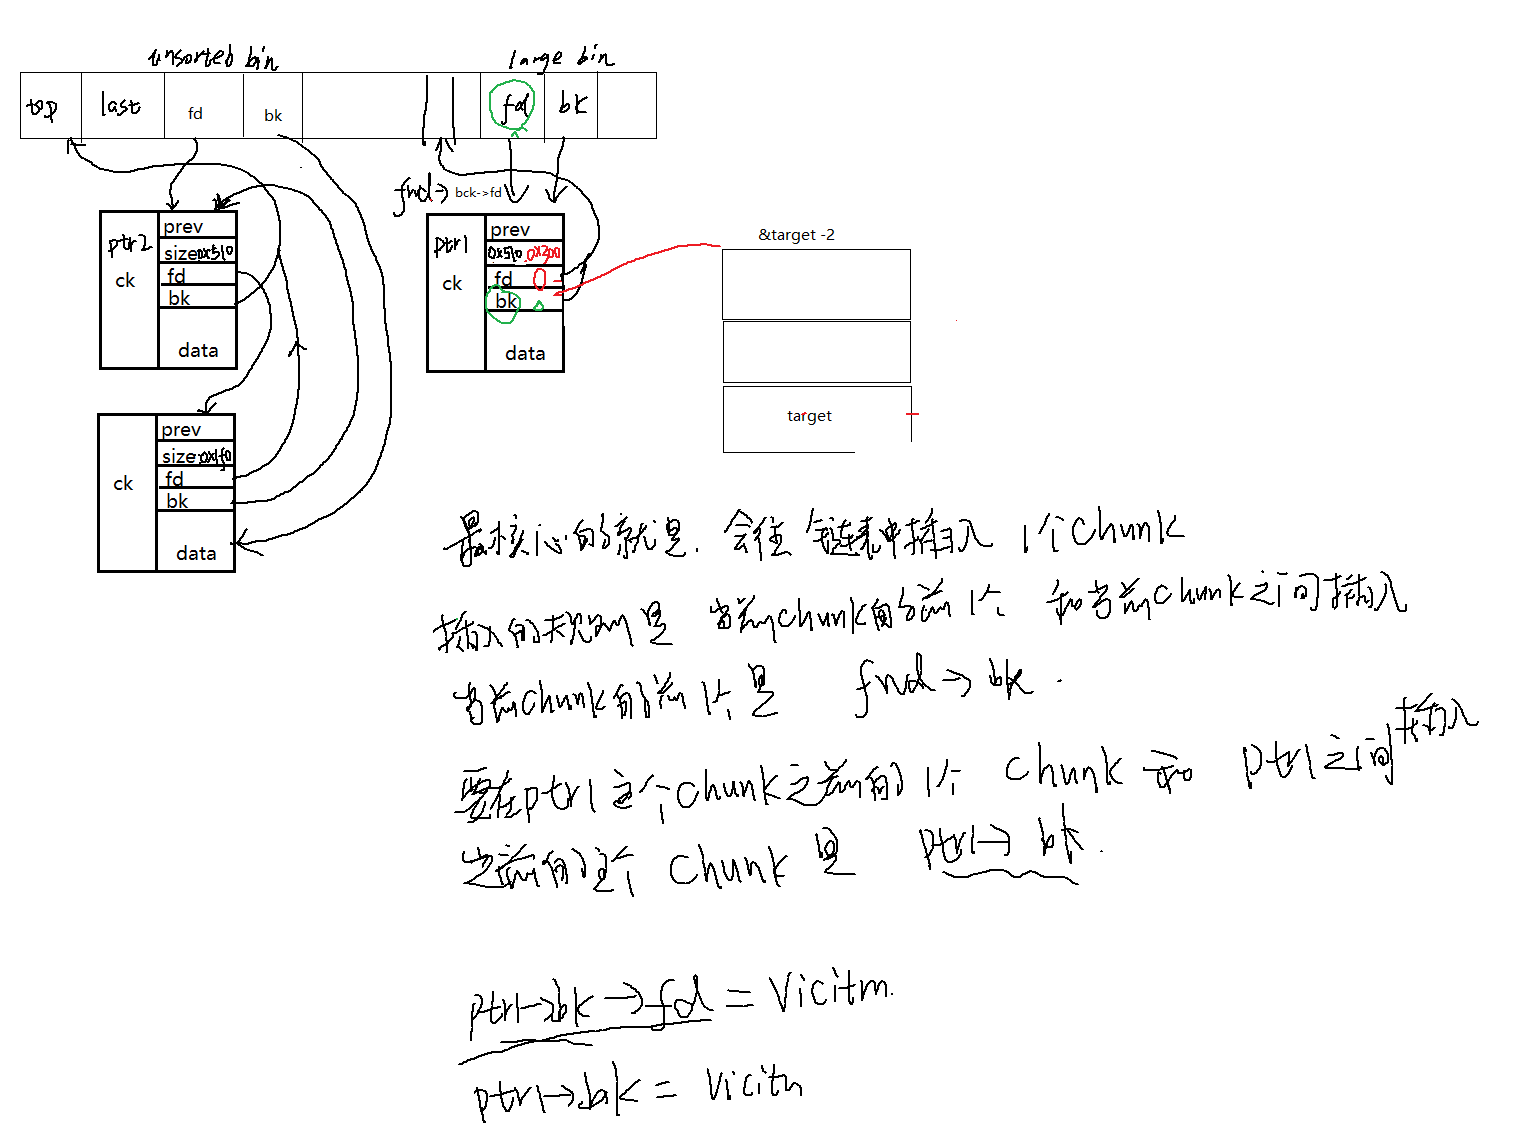 unsorted bin
large bin
top
last
fd
bk
fd
bk
fwd→ bck->fd
ptr2
ck
prev
size 0x510
fd
bk
data
ptr1
ck
prev
0x510 0x300
fd 0
bk
data
&target -2
target
ck
prev
size
fd
bk
data
最核心的就是. 会往 链表中插入 1个Chunk
插入的规则是 当前chunk的前1个 和当前Chunk之间插入
当前Chunk的前1个是 fwd→bk.
要在ptr1这个Chunk之前的1个 Chunk 和 ptr1之间插入
之前的这个 Chunk 是 ptr1→bk.
ptr1→bk→fd = Vicitm.
ptr1→bk = Vicitm